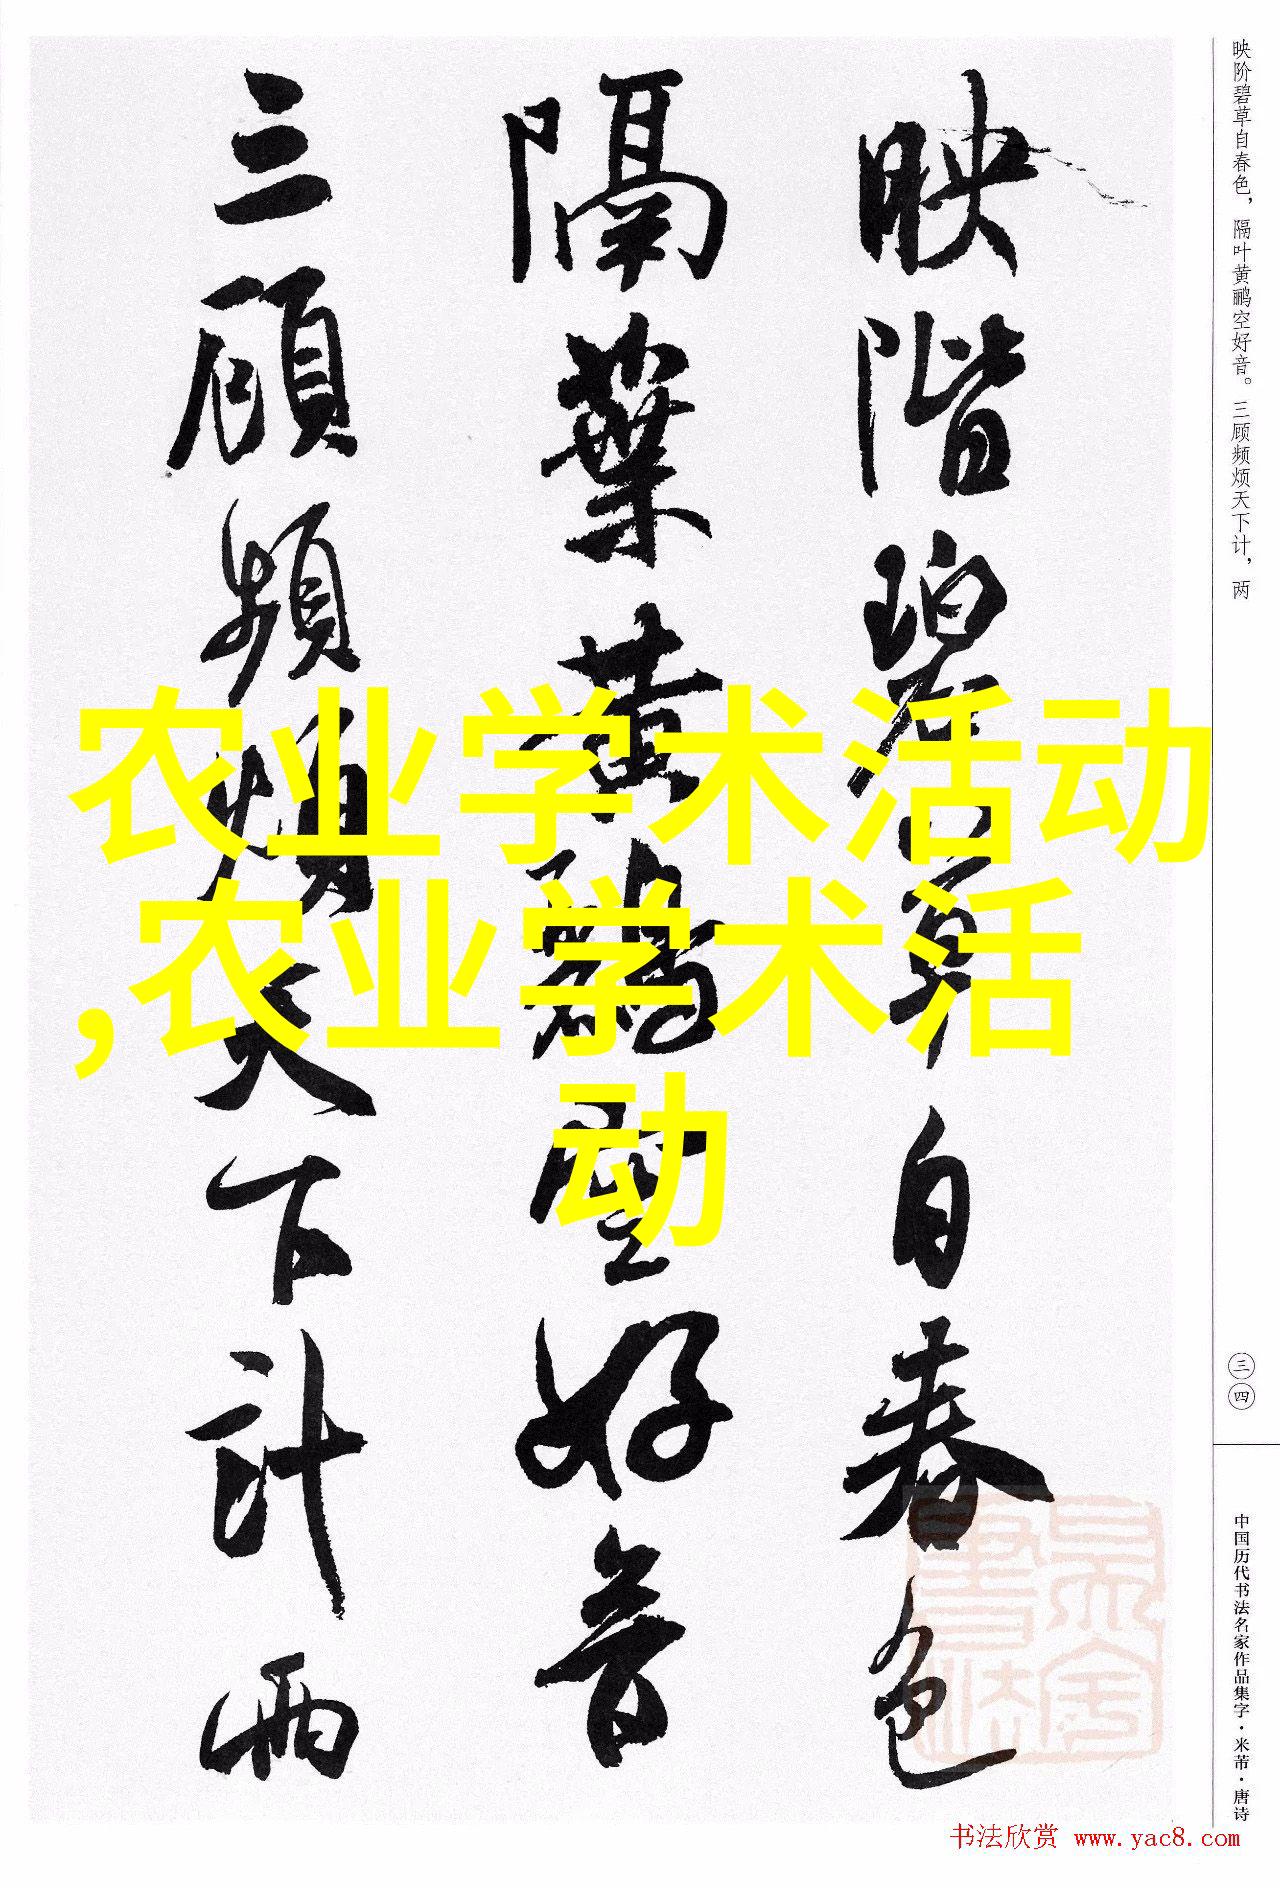 映階碧草自春色
隔葉黃鸝空好音
三顧頻煩天下計兩
農业学术活动
,农业学术活
动
映阶碧草自春色，隔叶黄鹂空好音。三顾频烦天下计，两
三四
中国历代书法名家作品集字·米芾·唐诗
书法欣赏 www.yac8.com